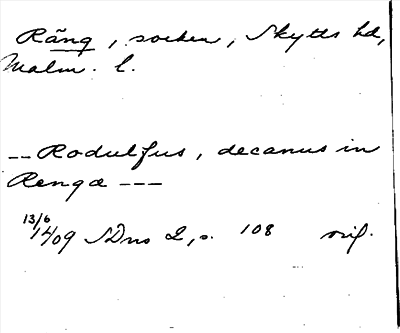 Räng, socken, Skytts hd,
Malm. l.
-- Rodulfus, decanus in
Renga ---
13/6
1409 SDns 2, s. 108 orig.